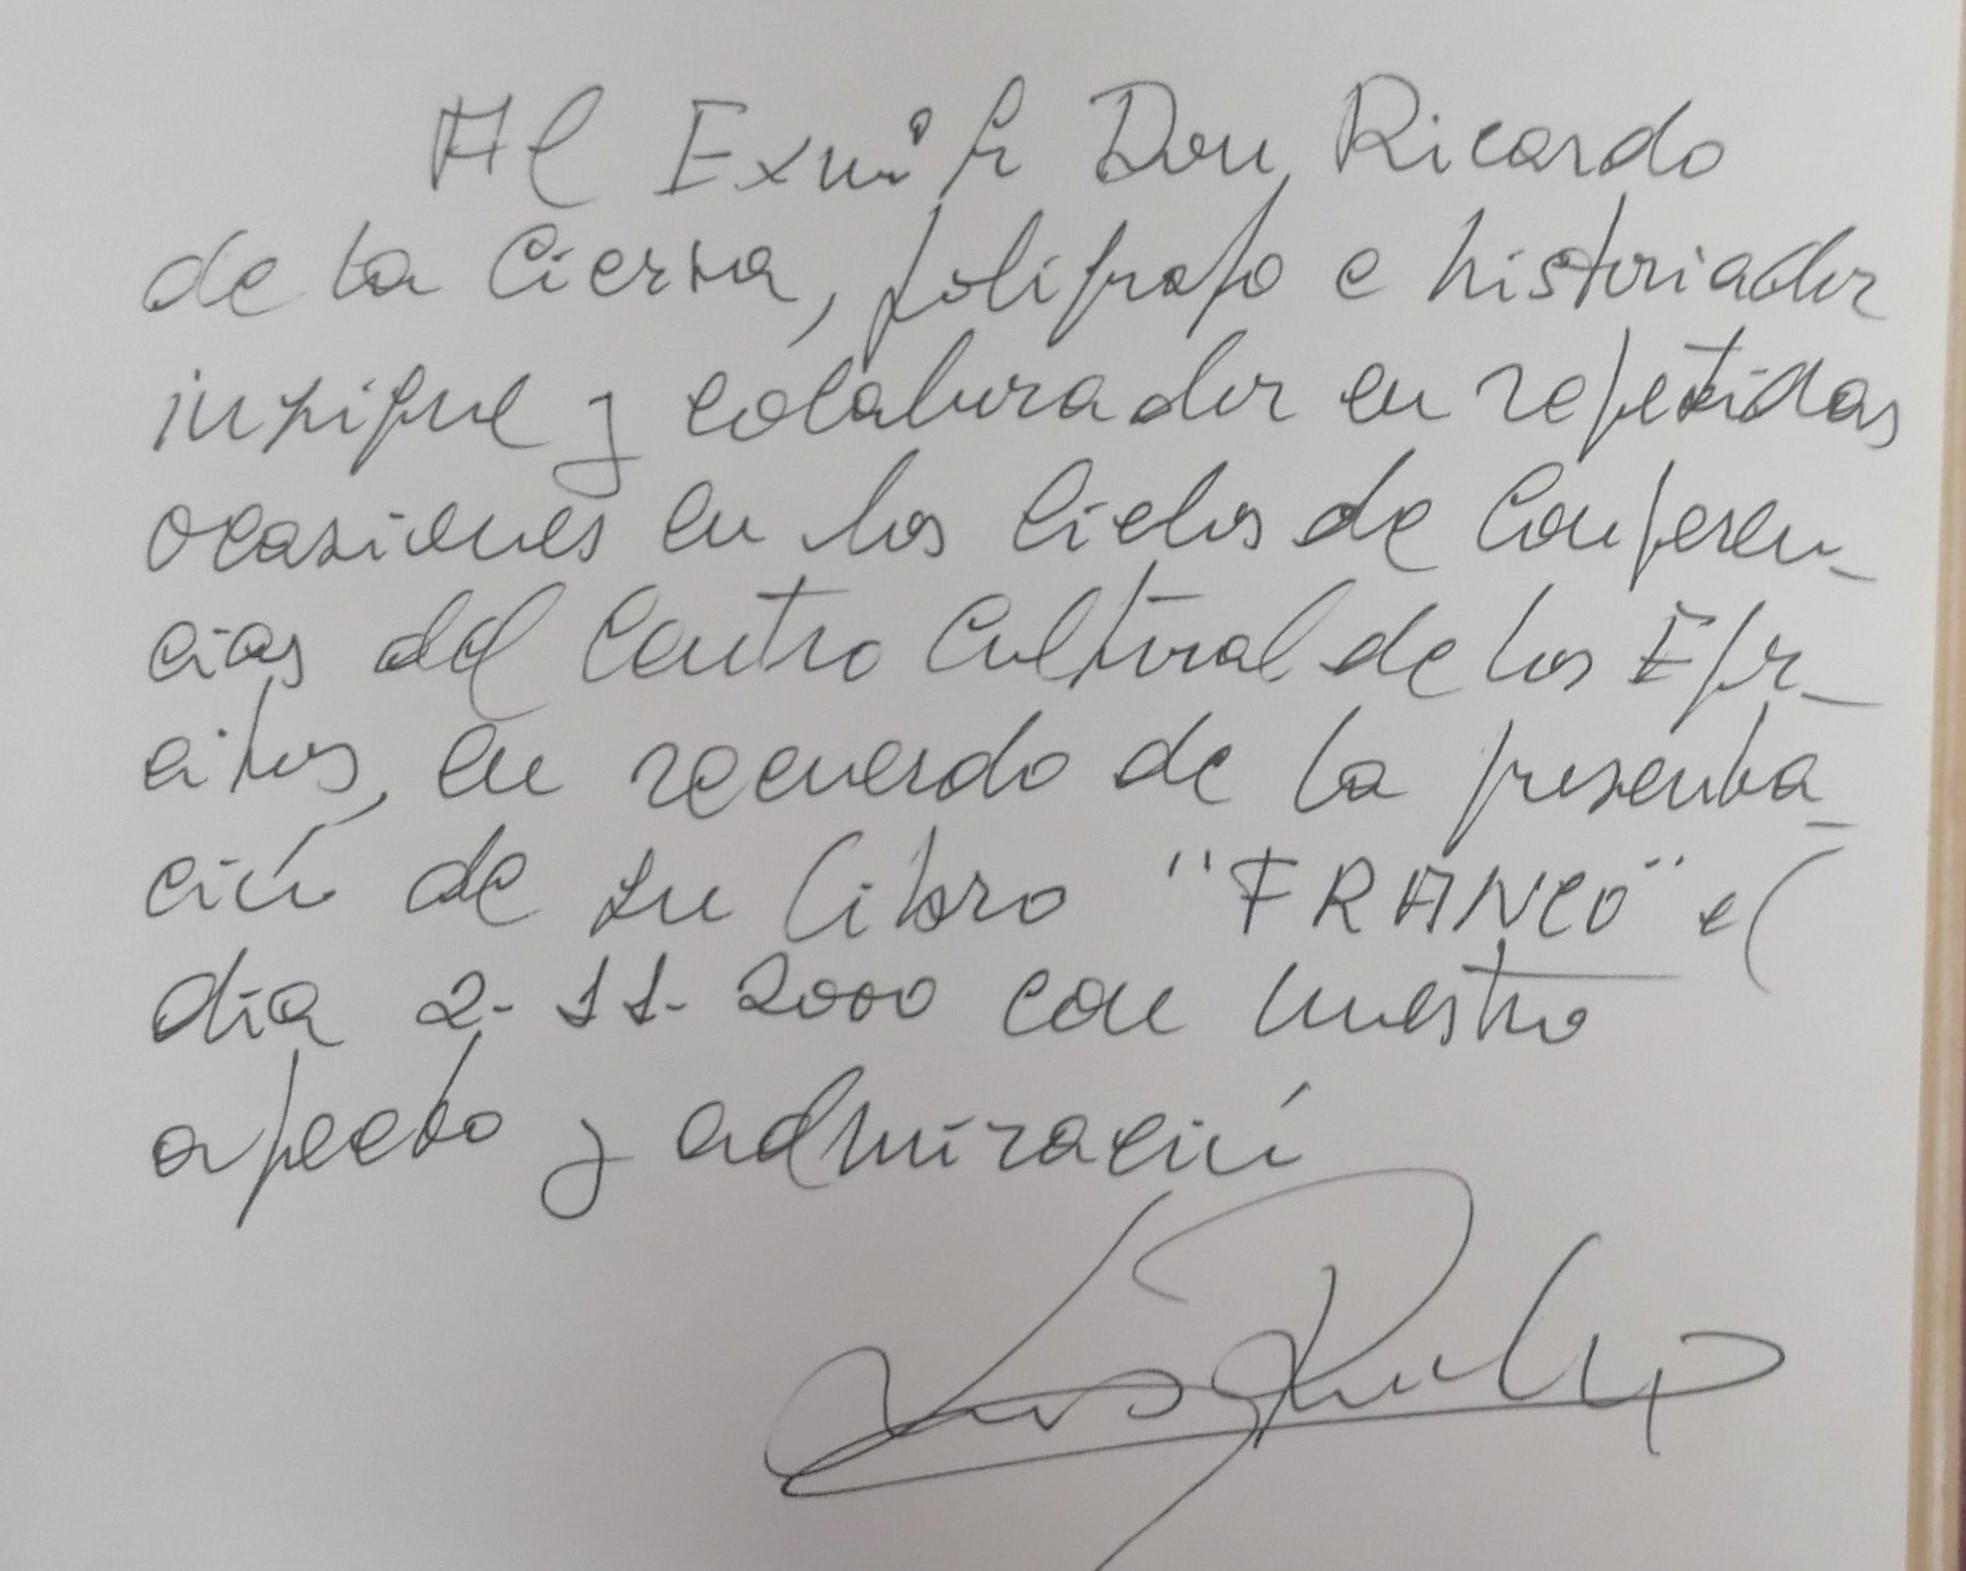 Al Exmº Sr Don Ricardo
de la Cierva, polígrafo e historiador
insigne y colaborador en repetidas
ocasiones en los Ciclos de Conferen-
cias del Centro Cultural de los Ejér-
citos, en recuerdo de la presenta-
ción de su libro "FRANCO" el
día 2-11-2000 con nuestro
afecto y admiración